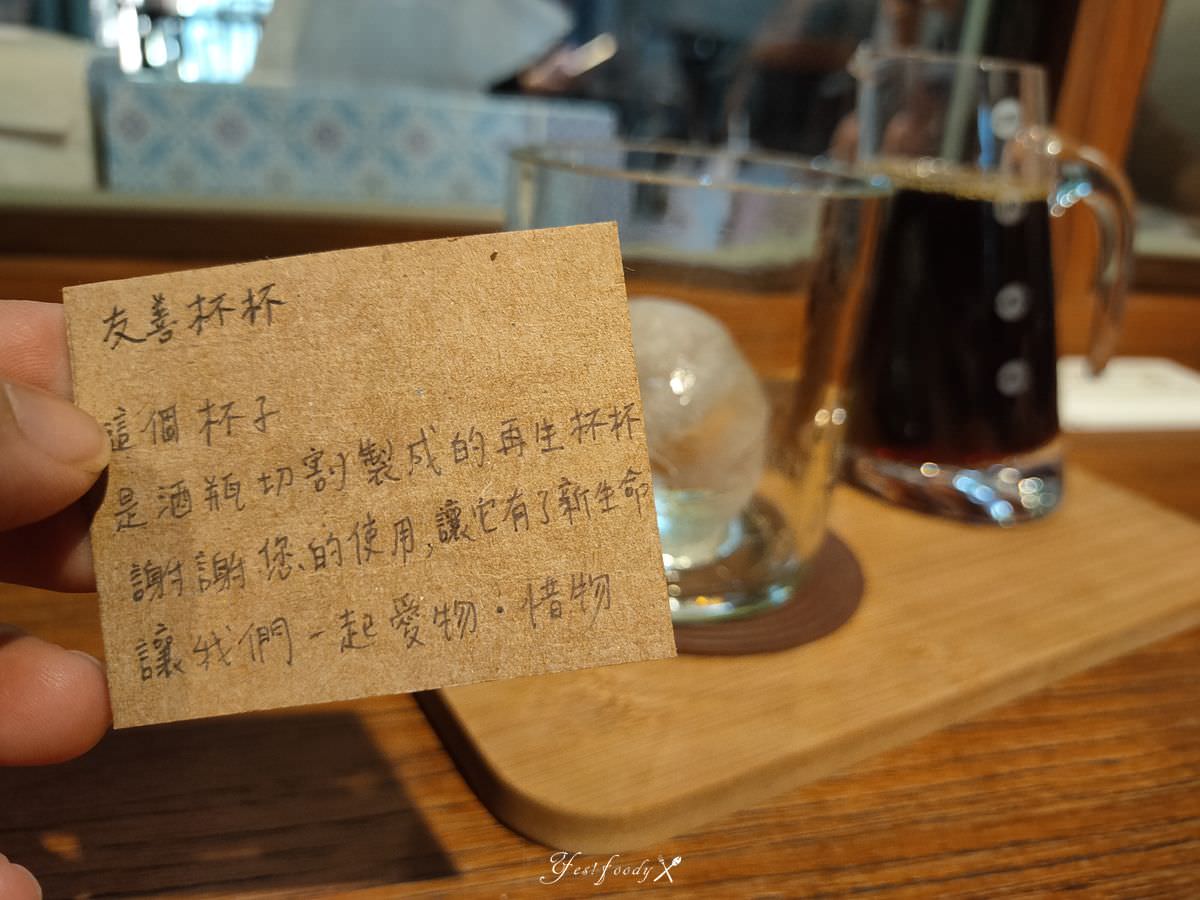 友善杯杯
這個杯子
是酒瓶切割製成的再生杯杯
謝謝您的使用,讓它有了新生命
讓我們一起愛物·惜物
Yes!foody